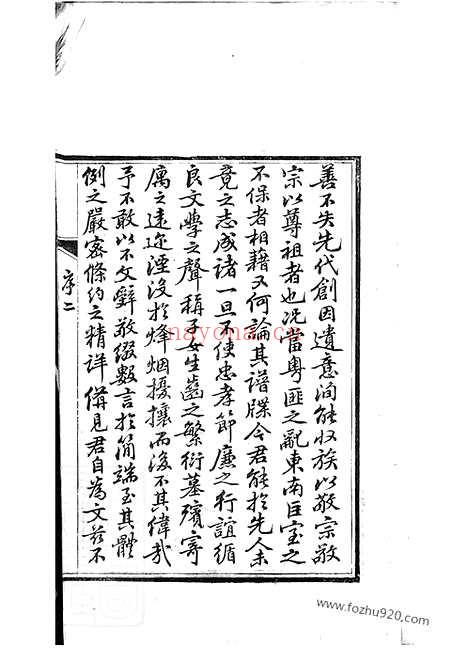 善不失先代創因遺意洵能收族以敬宗敬
宗以尊祖者也況當粵匪之亂東南巨室之
不保者相藉又何論其譜牒今君能於先人未
竟之志成諸一旦以使忠孝節廉之行誼循
良文學之聲稱子女生齒之繁衍墓殯寄
庽之遠迩湮沒於烽烟擾攘而後不其偉哉
予不敢以不文辭敬綴數言於簡端至其體
例之嚴密條約之精詳備見君自為文茲不
序二
nayona.cn
www.fozhu920.com